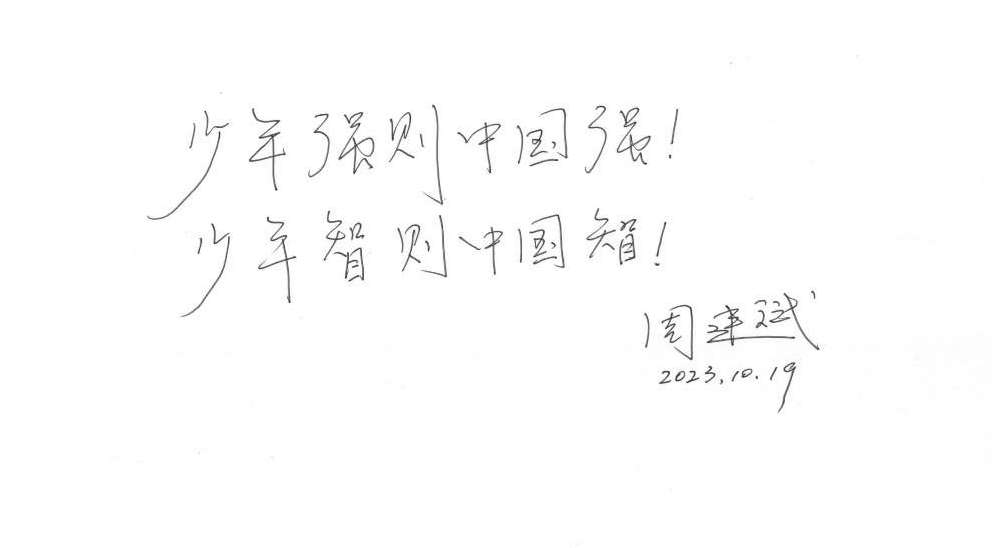 少年强则中国强!
少年智则中国智!
周建斌
2023.10.19